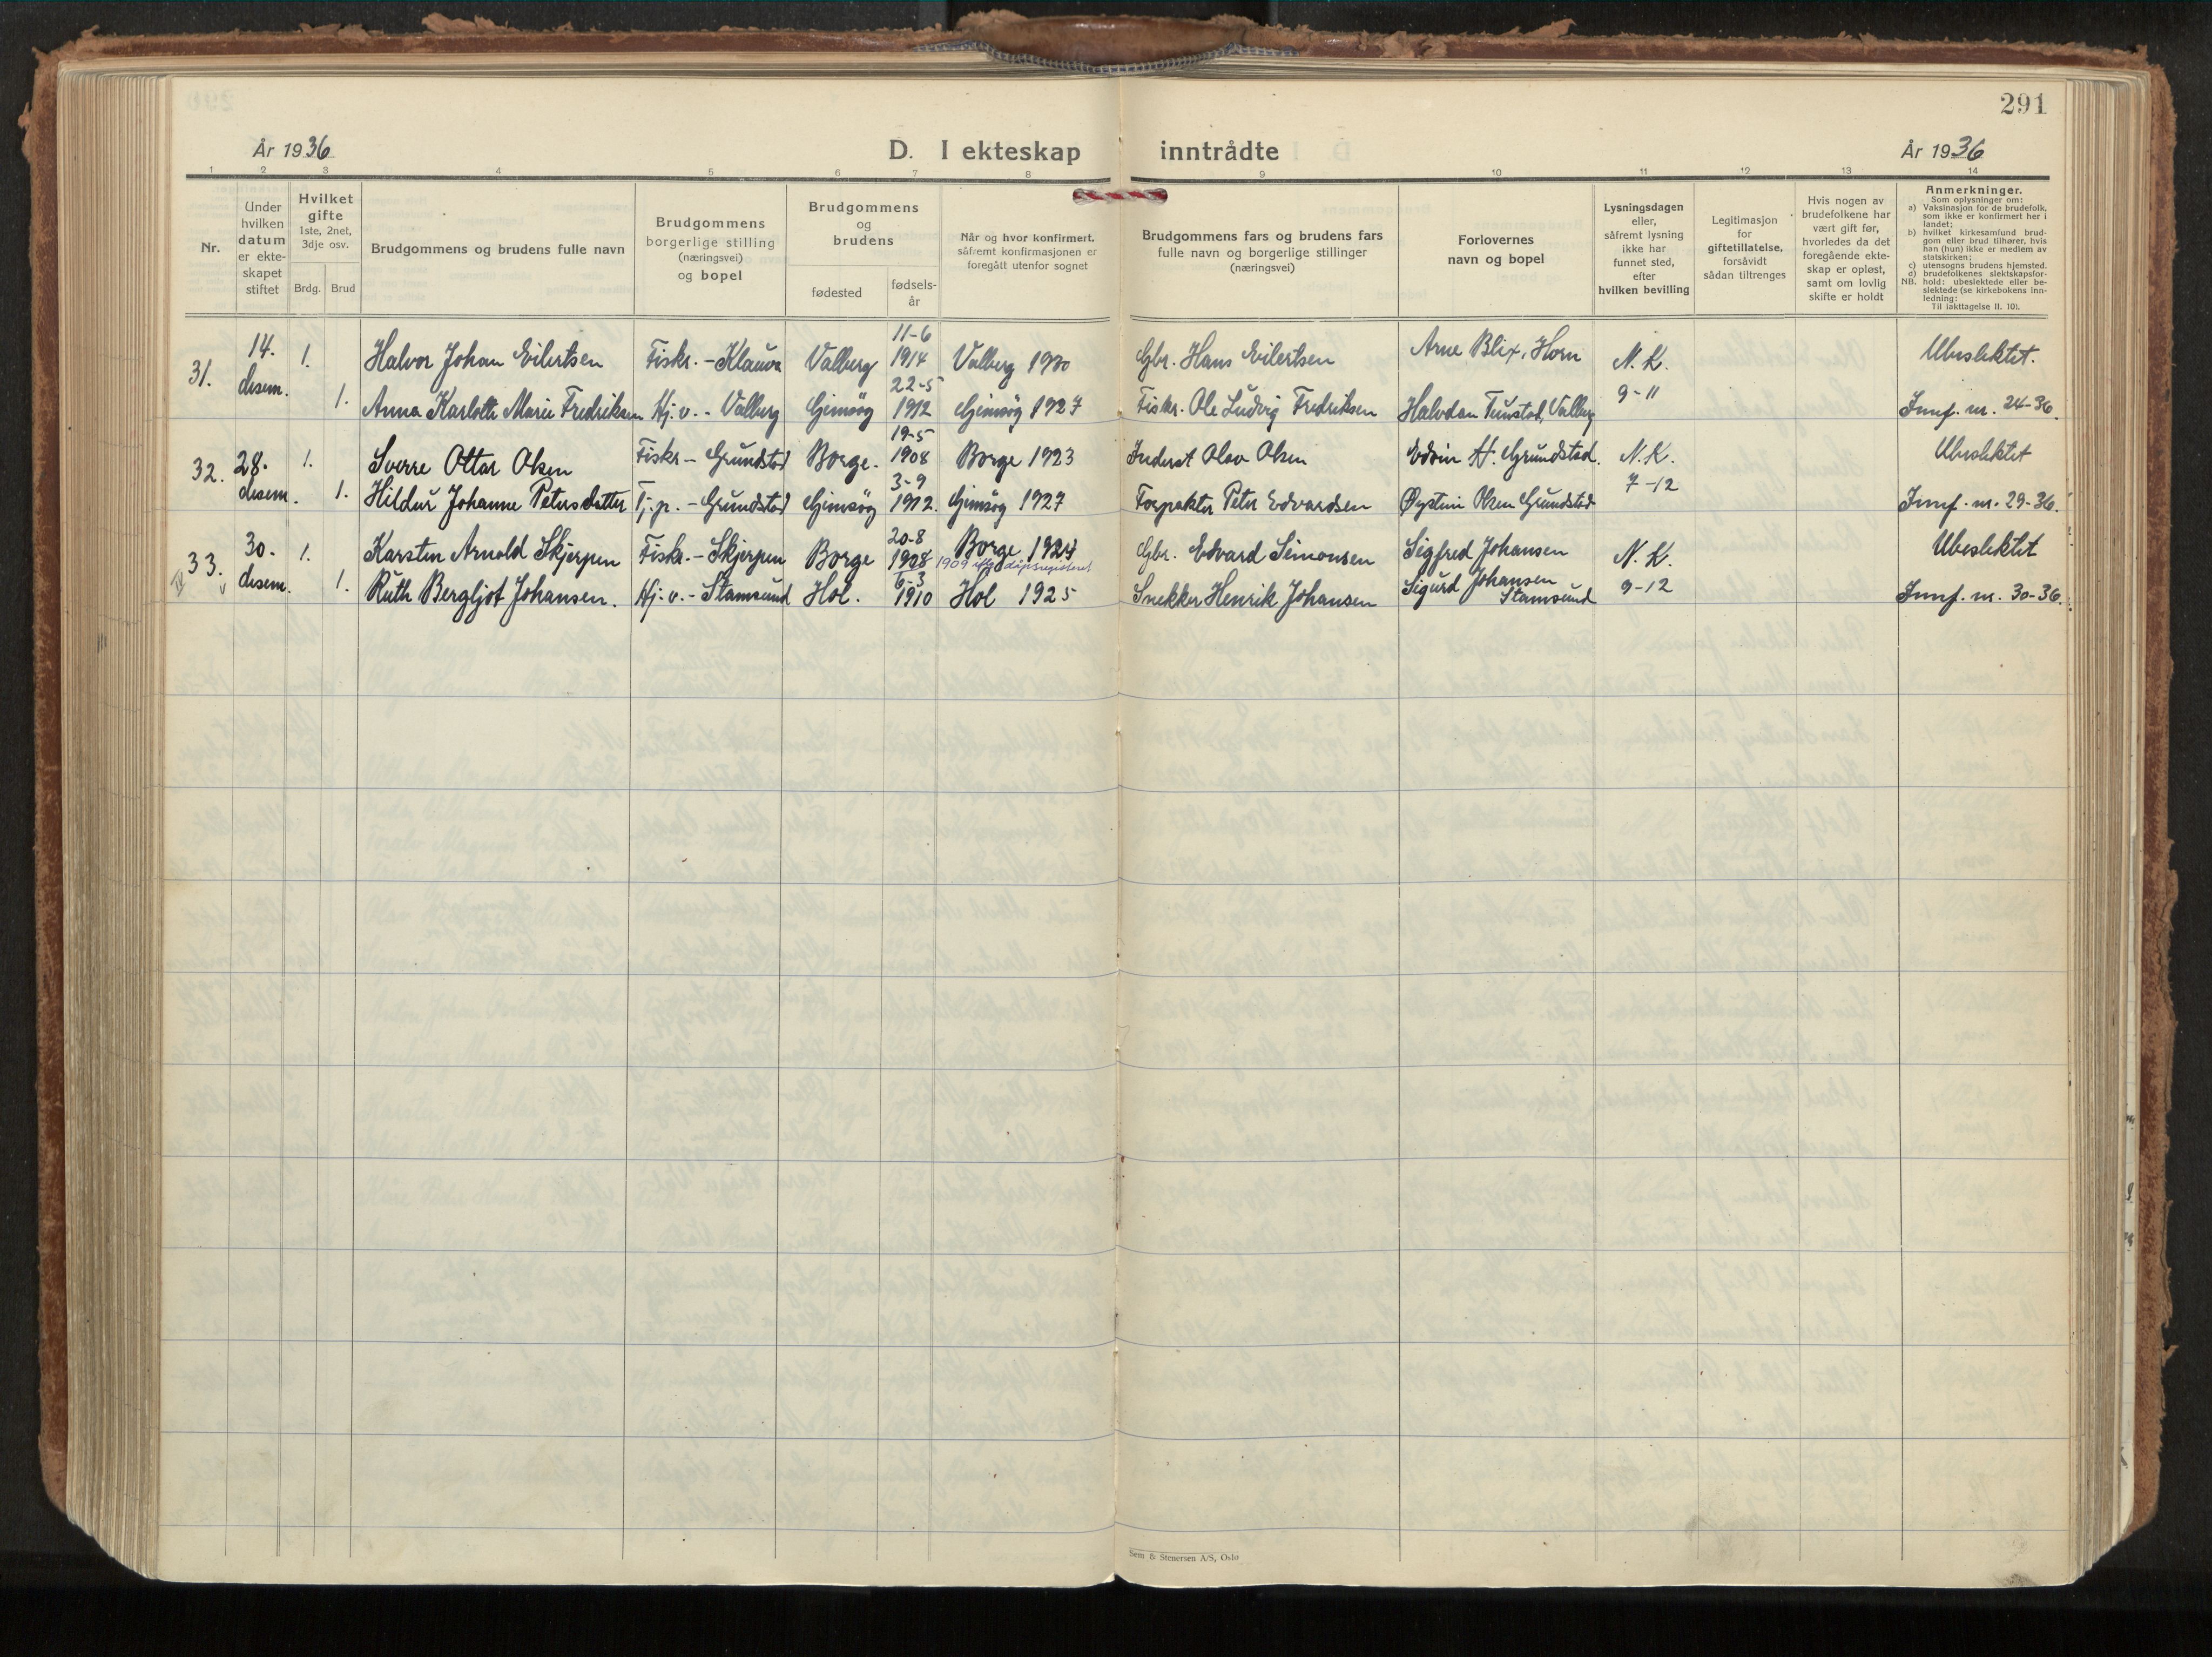 291
År 1936
D. I ekteskap inntrådte
År 1936
1 2 3 4 5 6 7 8 9 10 11 12 13 14
Nr.
Under
hvilken
datum
er ekte-
skapet
stiftet
Hvilket
gifte
1ste, 2net,
3dje osv.
Brdg. Brud
Brudgommens og brudens fulle navn
Brudgommens
borgerlige stilling
(næringsvei)
og bopel
Brudgommens
og
brudens
fødested
fødsels-
år
Når og hvor konfirmert,
såfremt konfirmasjonen er
foregått utenfor sognet
Brudgommens fars og brudens fars
fulle navn og borgerlige stillinger
(næringsvei)
Forlovernes
navn og bopel
Lysningsdagen
eller,
såfremt lysning
ikke har
funnet sted,
efter
hvilken bevilling
Legitimasjon
for
giftetillatelse,
forsåvidt
sådan tiltrenges
Hvis nogen av
brudefolkene har
vært gift før,
hvorledes da det
foregående ekte-
skap er opløst,
samt om lovlig
skifte er holdt
Anmerkninger.
Som oplysninger om:
a) Vaksinasjon for de brudefolk,
som ikke er konfirmert her i
landet;
b) hvilket kirkesamfund brud-
gom eller brud tilhører, hvis
han (hun) ikke er medlem av
statskirken;
c) utensogns brudens hjemsted.
d) brudefolkenes slektskapsfor-
NB. hold: ubeslektede eller be-
slektede (se kirkebokens inn-
ledning:
Til iakttagelse II. 10).
31. 14. desem. 1. Halvor Johan Eilertsen Fiskr. - Klauva Valberg 11-6 1914 Valberg 1930 Gbr. Hans Eilertsen Arne Blix, Horn N. K. 9-11 Ubeslektet.
1. Anna Karlotte Marie Fredriksen Hj. v. - Valberg Gimsøy 22-5 1912 Gimsøy 1927 Fiskr. Ole Ludvig Fredriksen Halvdan Tunstad, Valberg Innf. nr. 24-36.
32. 28. desem. 1. Sverre Ottar Olsen Fiskr - Grundstad Borge. 19-5 1908 Borge 1923 Inderst Olav Olsen Edvin H. Grundstad. N. K. 7-12 Ubeslektet
1. Hildur Johanne Petersdatter Tj. p. - Grundstad Gimsøy 3-9 1912. Gimsøy 1927 Forpakter Peter Edvardsen Øystein Olsen Grundstad Innf. nr. 29-36.
33. 30. desem. 1. Karsten Arnold Skjerpen Fiskr. - Skjerpen Borge 20-8 1908 Borge 1924 Gbr. Edvard Simonsen Sigfred Johansen N. K. 9-12 Ubeslektet
1909 iflg dåpsregisteret
1. Ruth Bergljot Johansen. Hj. v. - Stamsund Hol. 6-3 1910 Hol 1925 Snekker Henrik Johansen Sigurd Johansen Stamsund Innf. nr. 30-36.
Sem & Stenersen A/S, Oslo